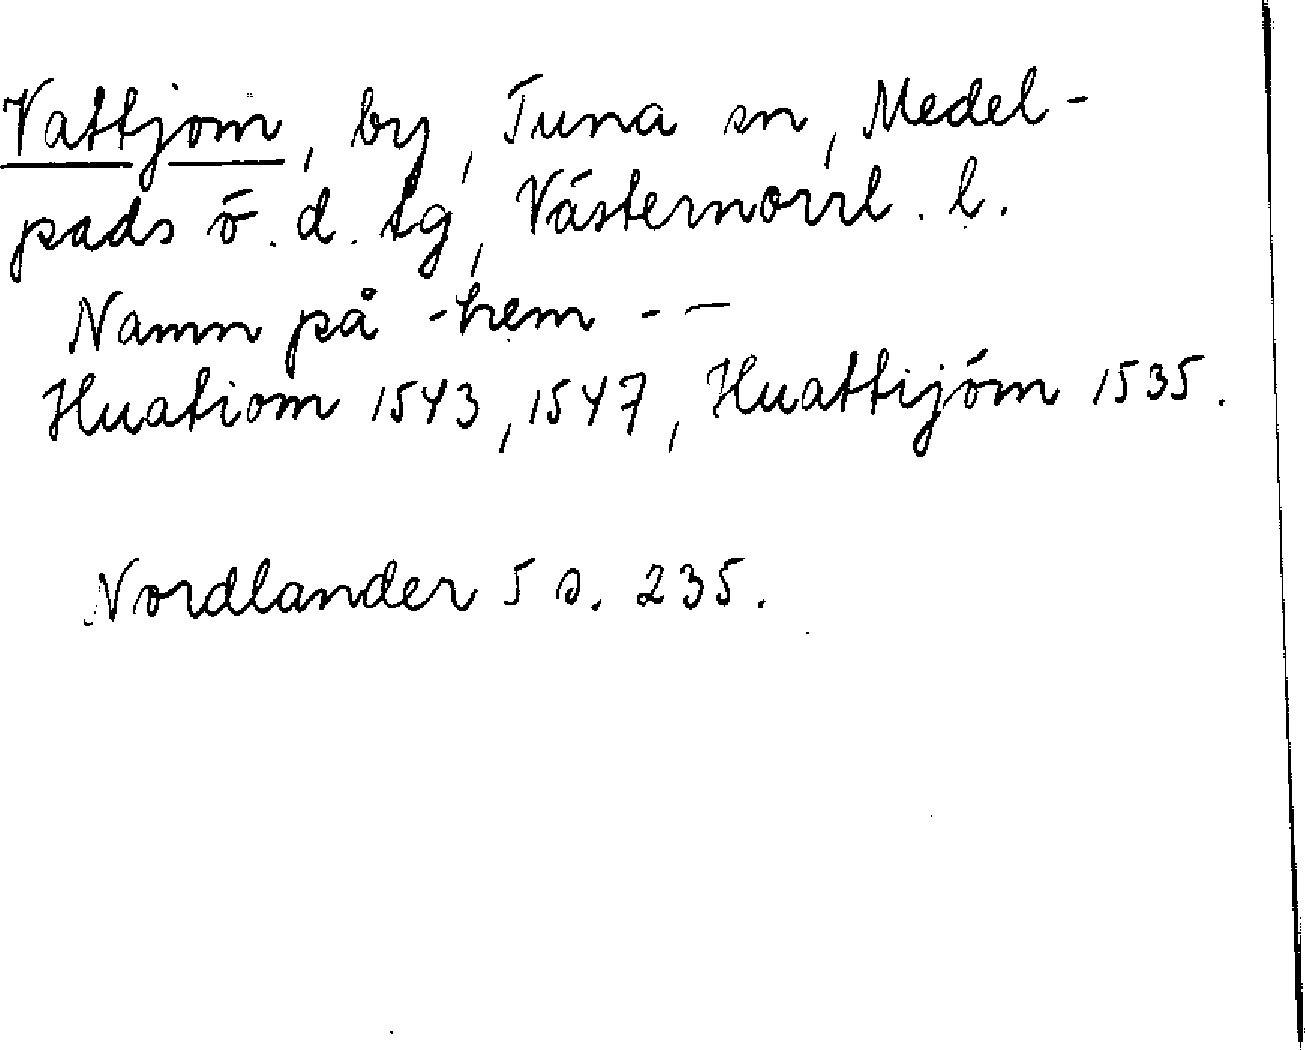 Vattjom, by, Tuna sn, Medel-
pads ö. d. tg, Västernorrl. l.
Namn på -hem - —
Huatiom 1543, 1547, Huattijöm 1535.
Nordlander 5 s. 235.